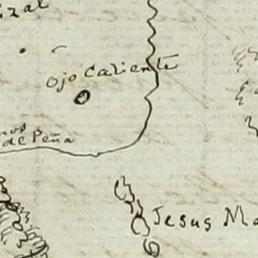 Ojo Caliente
de Peña
Jesus Ma